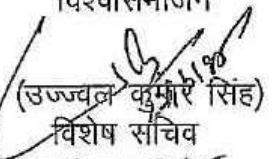 विश्वासभाजन
(उज्ज्वल कुमार सिंह)
विशेष सचिव